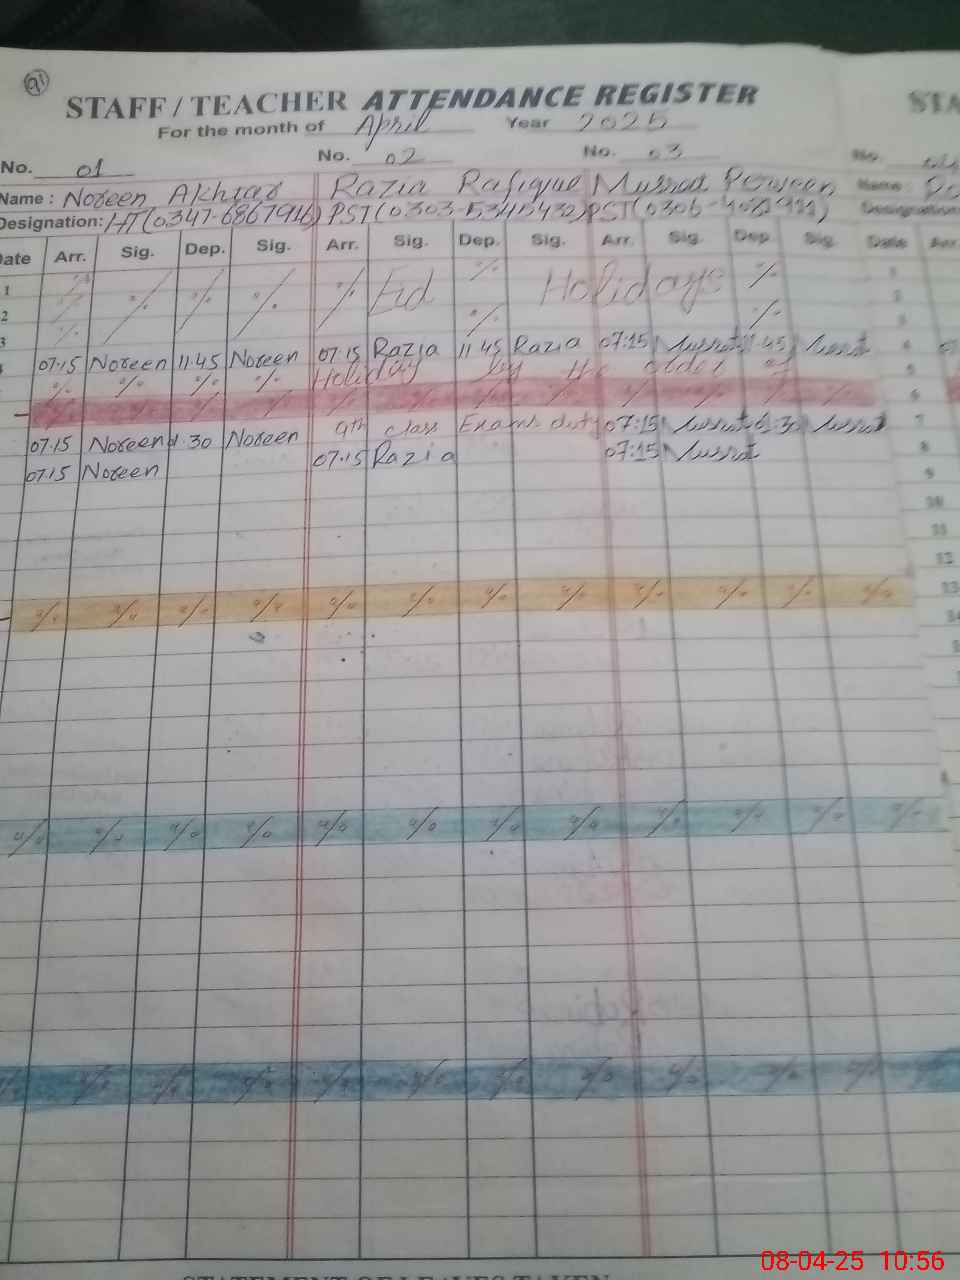 91
STAFF / TEACHER ATTENDANCE REGISTER STA
For the month of April Year 2025
No. 01 No. 02 No. 03 No.
Name : Noreen Akhtar Razia Rafique Mussrat Perveen Name :
Designation: HT(0347-6867946) PST(0303-5345432) PST(0306- Designation
Date Arr. Sig. Dep. Sig. Arr. Sig. Dep. Sig. Arr. Sig. Dep. Sig. Date Arr.
1 % % % % % Eid % Holidays % 1
2 % % % 2
3 % 3
4 07:15 Noreen 11:45 Noreen 07:15 Razia 11:45 Razia 07:15 Mussrat 11:45 Mussrat 4
% % % % Holiday by the order of 5
% % % % % % % % % % % % 6
07:15 Noreen 1:30 Noreen 9th class Exams duty 07:15 Mussrat 1:30 Mussrat 7
07:15 Noreen 07:15 Razia 07:15 Mussrat 8
9
10
11
12
% % % % % % % % % % % % 13
14
% % % % % % % % % % % %
% % % % % % % % % % % %
STATEMENT OF LEAVES TAKEN
08-04-25 10:56